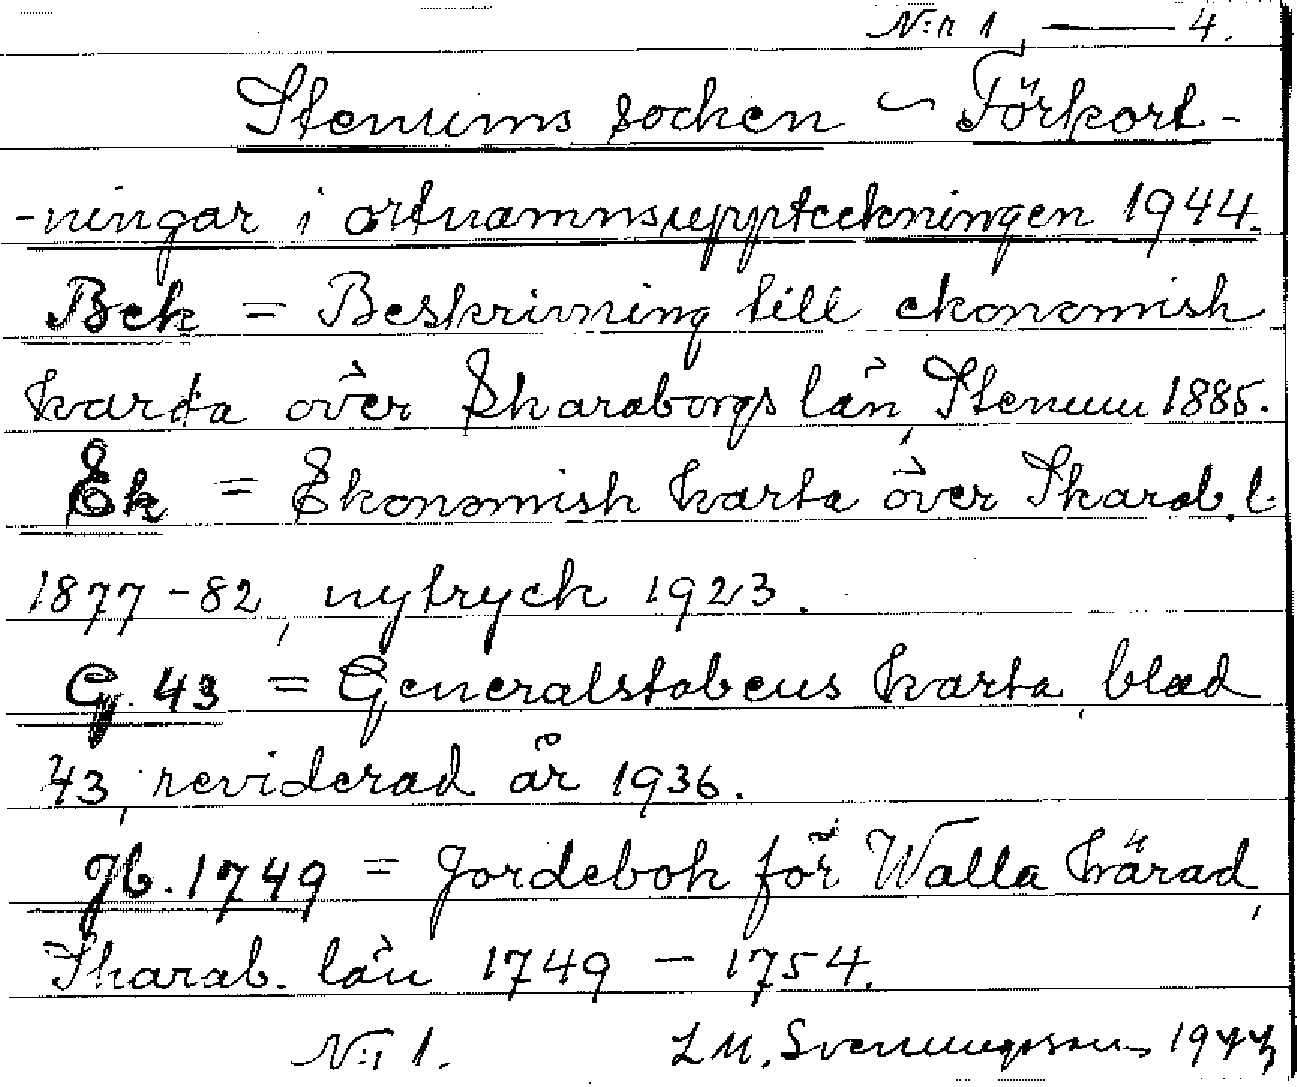 N:r 1 — 4.
Stenums socken – Förkort-
-ningar i ortnamnsuppteckningen 1944.
Bek = Beskrivning till ekonomisk
karta över Skaraborgs län, Stenum 1885.
Ek = Ekonomisk karta över Skarab. l.
1877-82, nytryck 1923.
G. 43 = Generalstabens karta, blad
43, reviderad år 1936.
Jb. 1749 = Jordebok för Walla härad,
Skarab. län 1749 – 1754.
N:r 1. L M. Svenungsson 1944